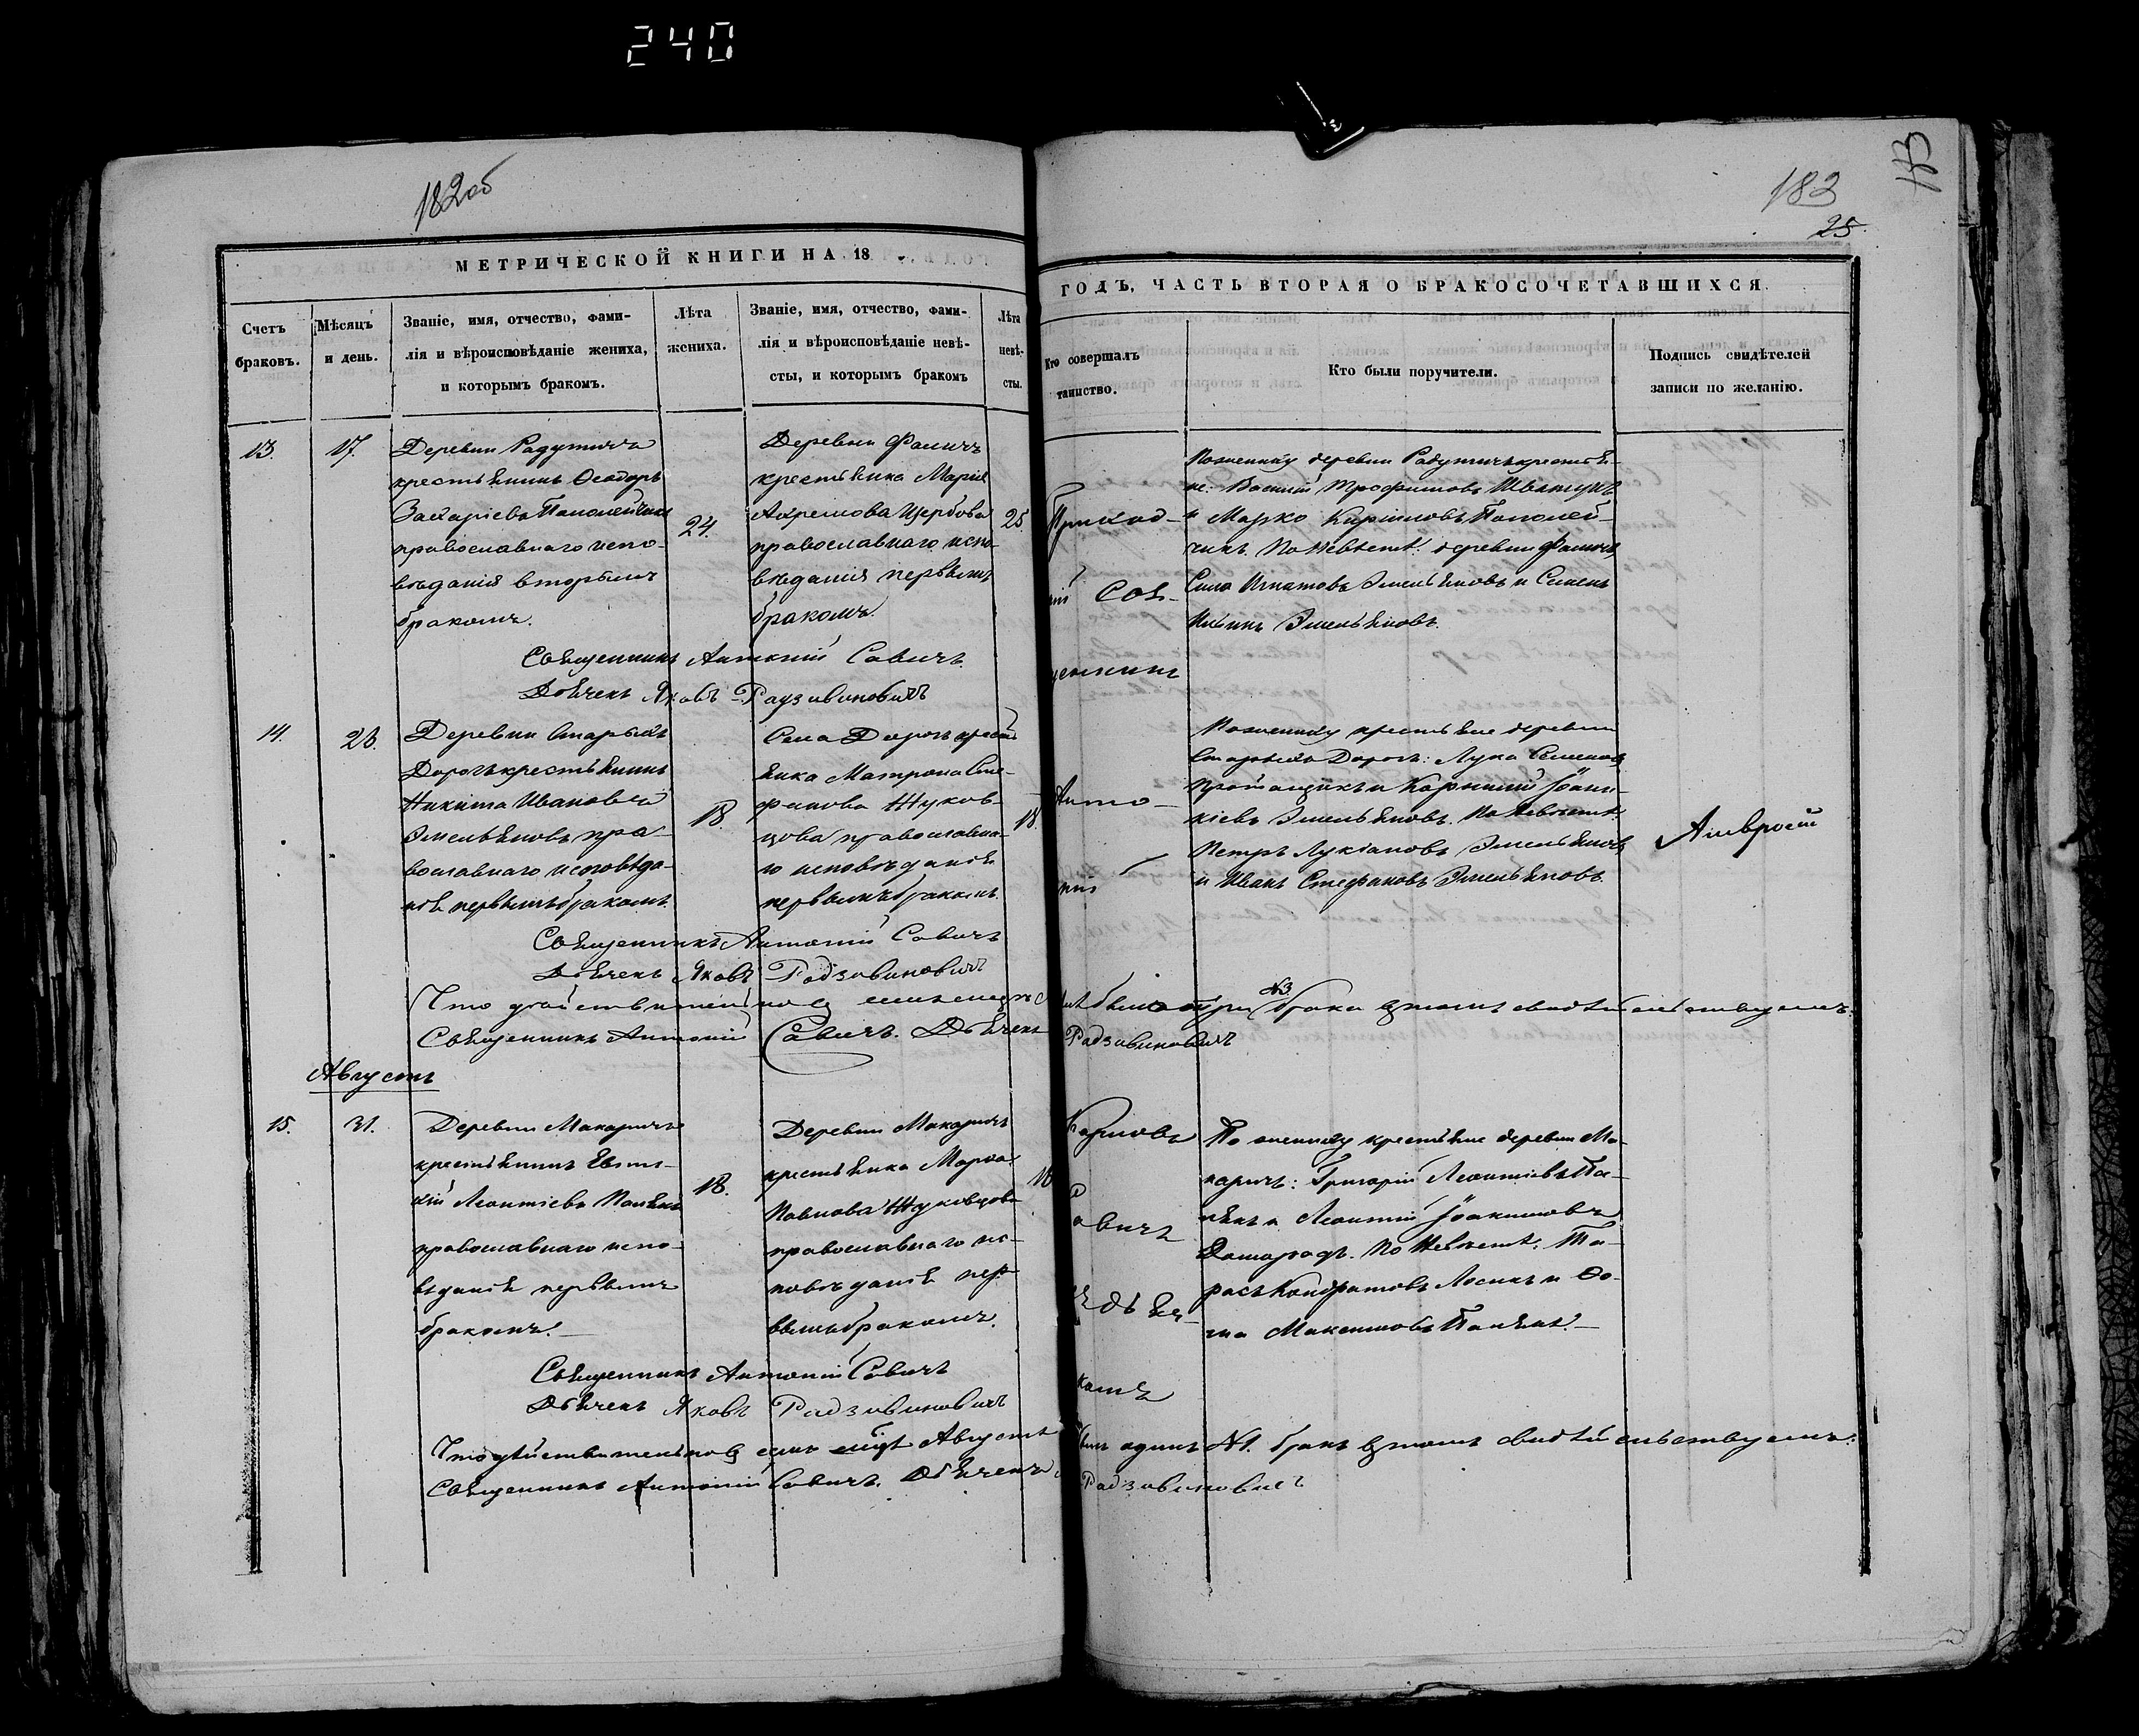 240
182об
183
25
МЕТРИЧЕСКОЙ КНИГИ НА 18
ГОДЪ, ЧАСТЬ ВТОРАЯ О БРАКОСОЧЕТАВШИХСЯ.
Счетъ
браковъ.
Мѣсяцъ
и день.
Званіе, имя, отчество, фами-
лія и вѣроисповѣданіе жениха,
и которымъ бракомъ.
Лѣта
жениха.
Званіе, имя, отчество, фами-
лія и вѣроисповѣданіе невѣ-
сты, и которымъ бракомъ
Лѣта
невѣ-
сты.
Кто совершалъ
таинство.
Кто были поручители.
Подпись свидѣтелей
записи по желанію.
13.
17.
Деревни Радутичъ
крестьянинъ Ѳеодоръ
Захаріевъ Пополейчикъ
православнаго испо-
вѣданія вторымъ
бракомъ.
24.
Деревни Фаличъ
крестьянка Марія
Ахремова Щербова
православнаго испо-
вѣданія первымъ
бракомъ.
25
Приход-
Поженнику деревни Радутичъ крестья-
не: Василій Трофимовъ
и Марко Кириловъ Пополей-
чикъ. По невѣсте: деревни Фаличъ
Сила Игнатовъ Эмельяновъ и Семенъ
Ильинъ Эмельяновъ.
Священникъ Антоній Савичъ.
Дьячекъ Яковъ Радзивиновичъ
14.
23.
Деревни Старыхъ
Дорогъ крестьянинъ
Никита Ивановъ
Эмельяновъ пра-
вославнаго исповѣда-
нія первымъ бракомъ.
18.
Села Дорогъ крестья
янка Матрона Сте-
фанова Жуков-
цова православна-
го исповѣданія
первымъ бракомъ.
18.
Анто-
ній
Поженнику крестьяне деревни
Старыхъ Дорогъ: Лука Семеновъ
и Корнилій Іоани-
кіевъ Эмельяновъ. По невѣсте:
Петръ Лукіановъ Эмельяновъ
и Иванъ Стефановъ Эмельяновъ.
Священникъ Антоній Савичъ
Дьячекъ Яковъ Радзивиновичъ
Что дѣйствительно въ семъ мѣсяцѣ было три №3. брака въ томъ свидѣтельствуемъ:
Священникъ Антоній Савичъ. Дьячекъ Радзивиновичъ
Августъ
15.
31.
Деревни Макаричъ
крестьянинъ Евти-
хій Леонтіевъ Палѣкъ
православнаго испо-
вѣданія первымъ
бракомъ.
18.
Деревни Макаричъ
крестьянка Марѳа
Павлова Жуковцова
православнаго ис-
повѣданія пер-
вымъ бракомъ.
18
По женнику крестьяне деревни Ма-
каричъ: Григорій Леонтіевъ Па-
лѣкъ и Леонтій Іоакимовъ
Домарадъ. По невѣсте: Та-
расъ Кондратовъ Лосикъ и Ѳо-
ма Максимовъ Палѣкъ.
Священникъ Антоній Савичъ
Дьячекъ Яковъ Радзивиновичъ
Что дѣйствительно въ семъ мѣсяцѣ Августѣ былъ одинъ №1. бракъ въ томъ свидѣтельствуемъ:
Священникъ Антоній Савичъ. Дьячекъ Радзивиновичъ